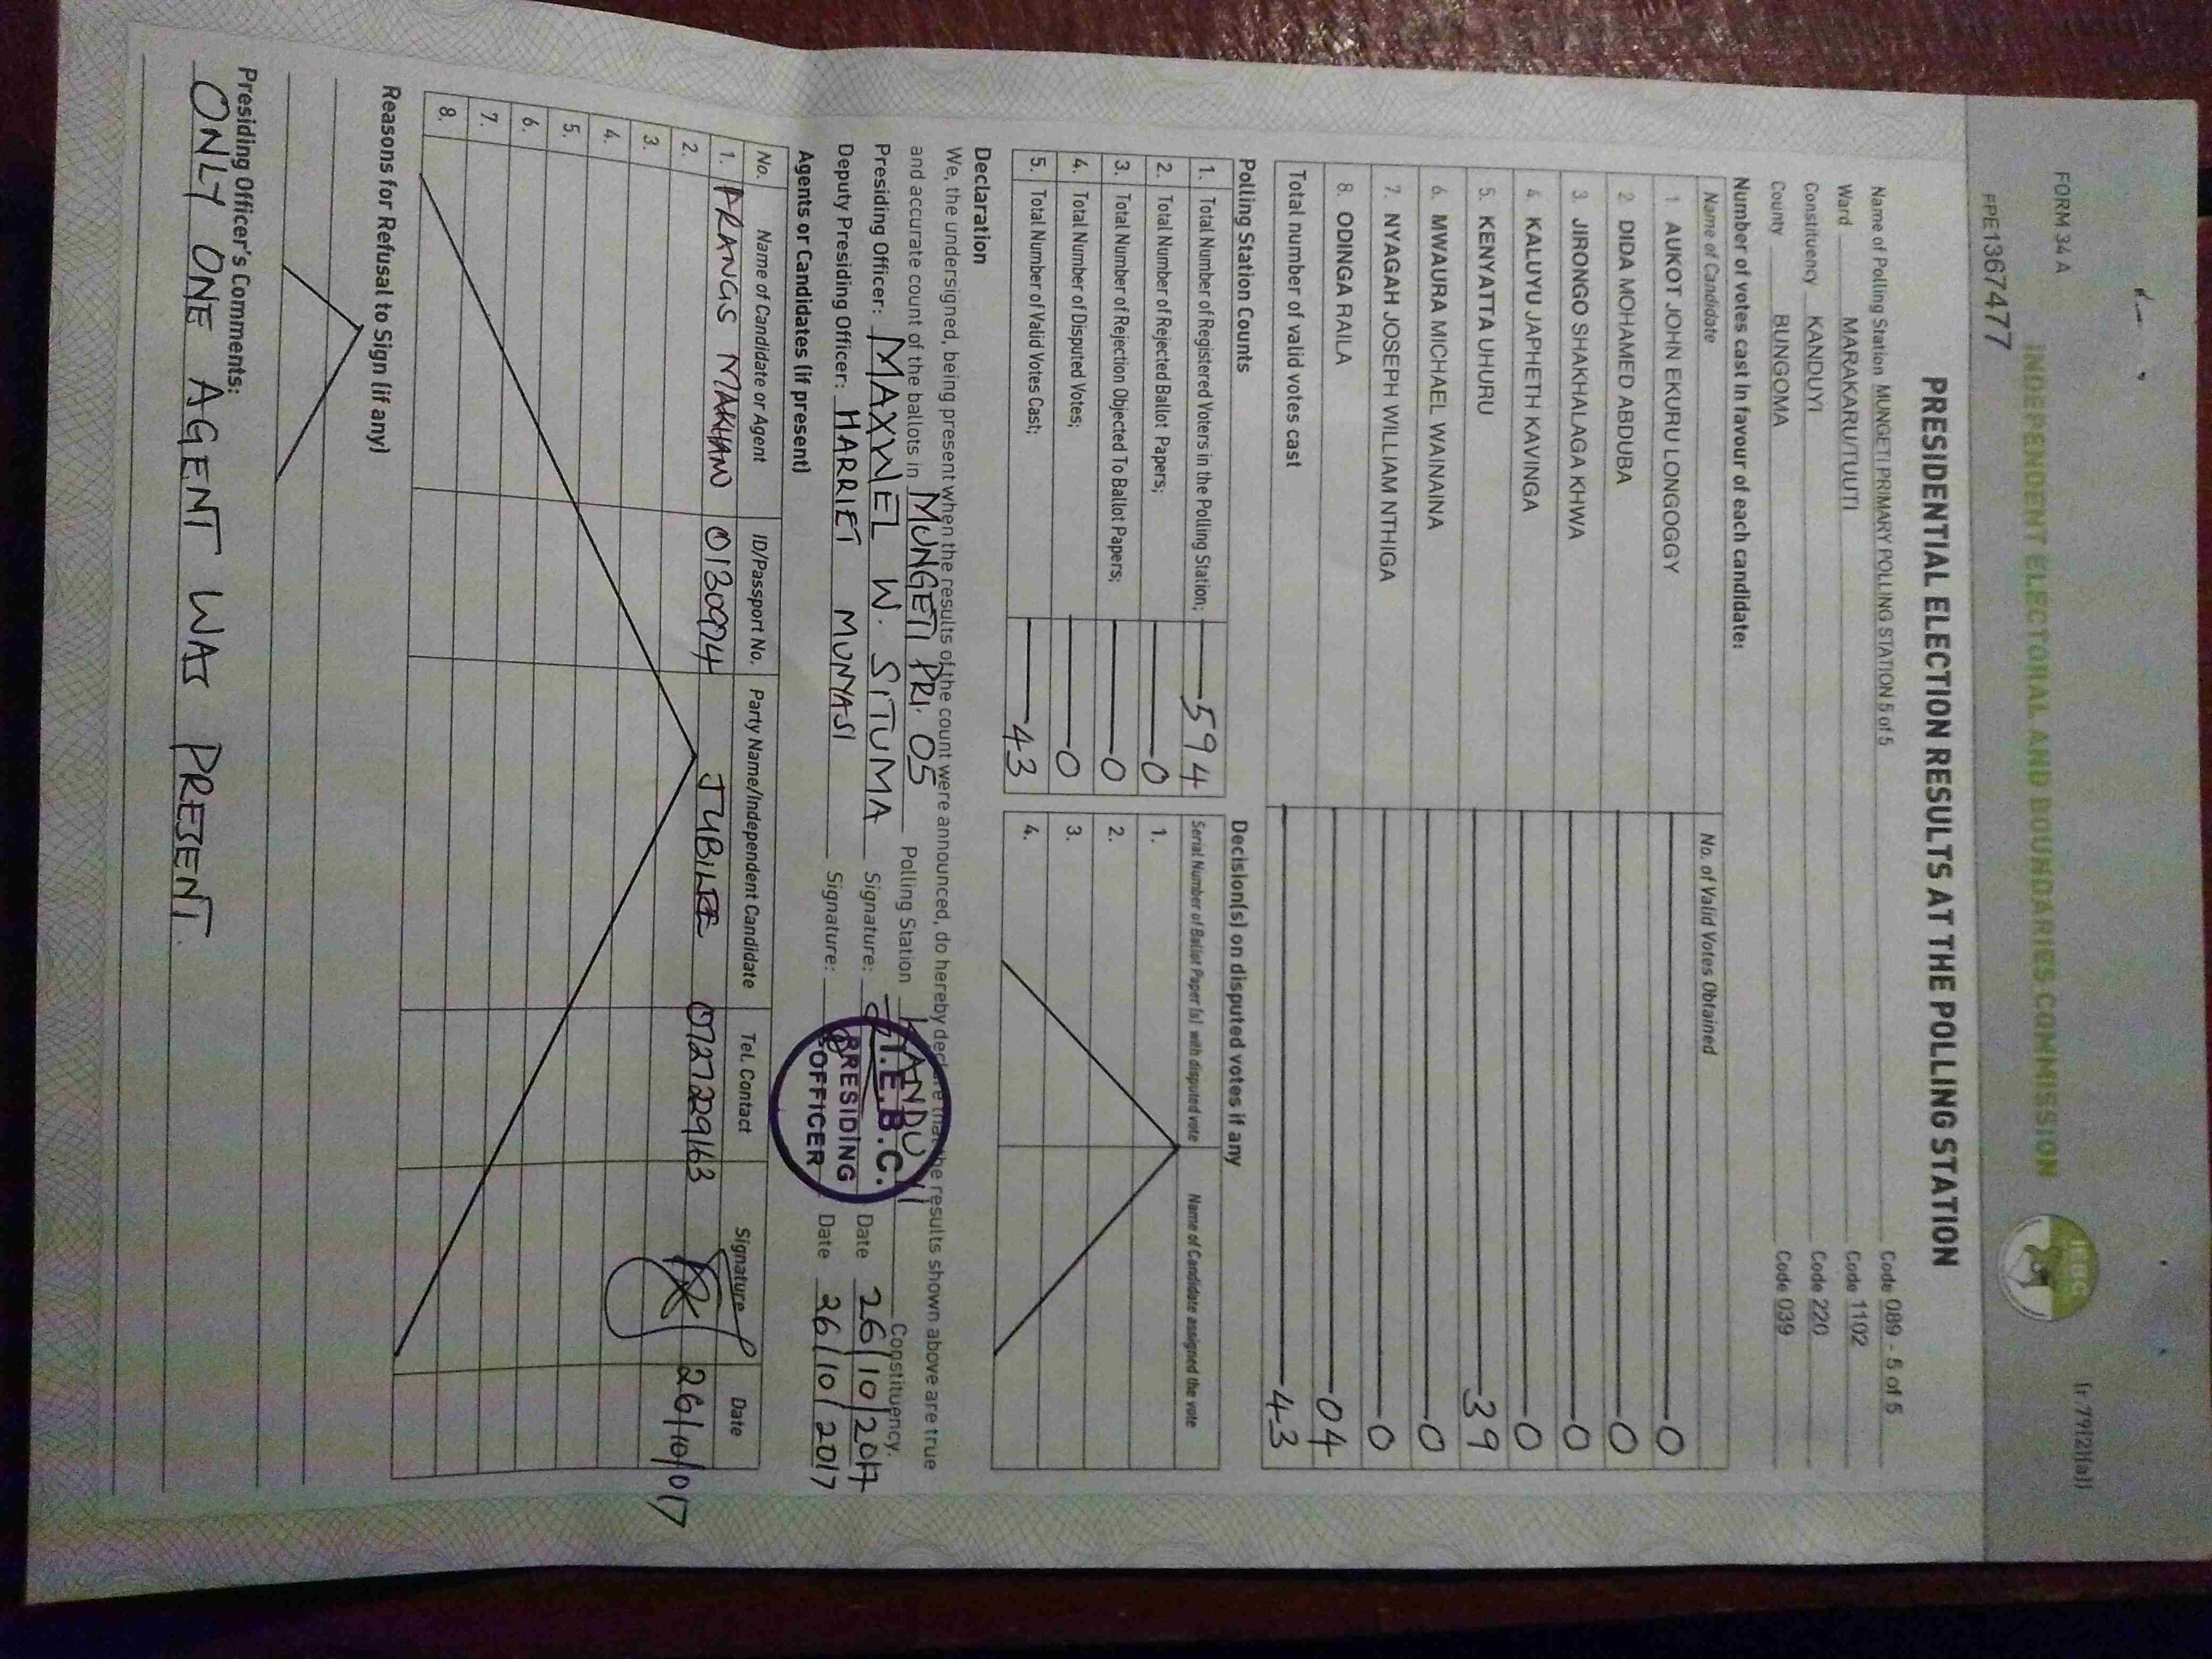 FORM 34 A
(r.79(2)(a))
INDEPENDENT ELECTORAL AND BOUNDARIES COMMISSION
IEBC
PRESIDENTIAL ELECTION RESULTS AT THE POLLING STATION
Name of Polling Station MUNGETI PRIMARY POLLING STATION 5 of 5 Code 089 - 5 of 5
Ward MARAKARU/TUUTI Code 1102
Constituency KANDUYI Code 220
County BUNGOMA Code 039
Number of votes cast in favour of each candidate:
Name of Candidate No. of Valid Votes Obtained
1 AUKOT JOHN EKURU LONGOGGY 0
2 DIDA MOHAMED ABDUBA 0
3. JIRONGO SHAKHALAGA KHWA 0
4. KALUYU JAPHETH KAVINGA 0
5. KENYATTA UHURU 39
6. MWAURA MICHAEL WAINAINA 0
7. NYAGAH JOSEPH WILLIAM NTHIGA 0
8. ODINGA RAILA 04
Total number of valid votes cast 43
Polling Station Counts
1. Total Number of Registered Voters in the Polling Station; 594
2. Total Number of Rejected Ballot Papers; 0
3. Total Number of Rejection Objected To Ballot Papers; 0
4. Total Number of Disputed Votes; 0
5. Total Number of Valid Votes Cast; 43
Decision(s) on disputed votes if any
Serial Number of Ballot Paper (s) with disputed vote Name of Candidate assigned the vote
1.
2.
3.
4.
Declaration
We, the undersigned, being present when the results of the count were announced, do hereby declare that the results shown above are true
and accurate count of the ballots in MUNGETI PRI. 05 Polling Station KANDUYI Constituency.
Presiding Officer: MAXWEL W. SITUMA Signature: Date 26/10/2017
Deputy Presiding Officer: HARRIET MUNYASI Signature: Date 26/10/2017
I.E.B.C.
PRESIDING
OFFICER
Agents or Candidates (if present)
No. Name of Candidate or Agent ID/Passport No. Party Name/Independent Candidate Tel. Contact Signature Date
1. JUBILEE 0727229163 26/10/017
2.
3.
4.
5.
6.
7.
8.
Reasons for Refusal to Sign (if any)
Presiding Officer's Comments:
ONLY ONE AGENT WAS PRESENT.